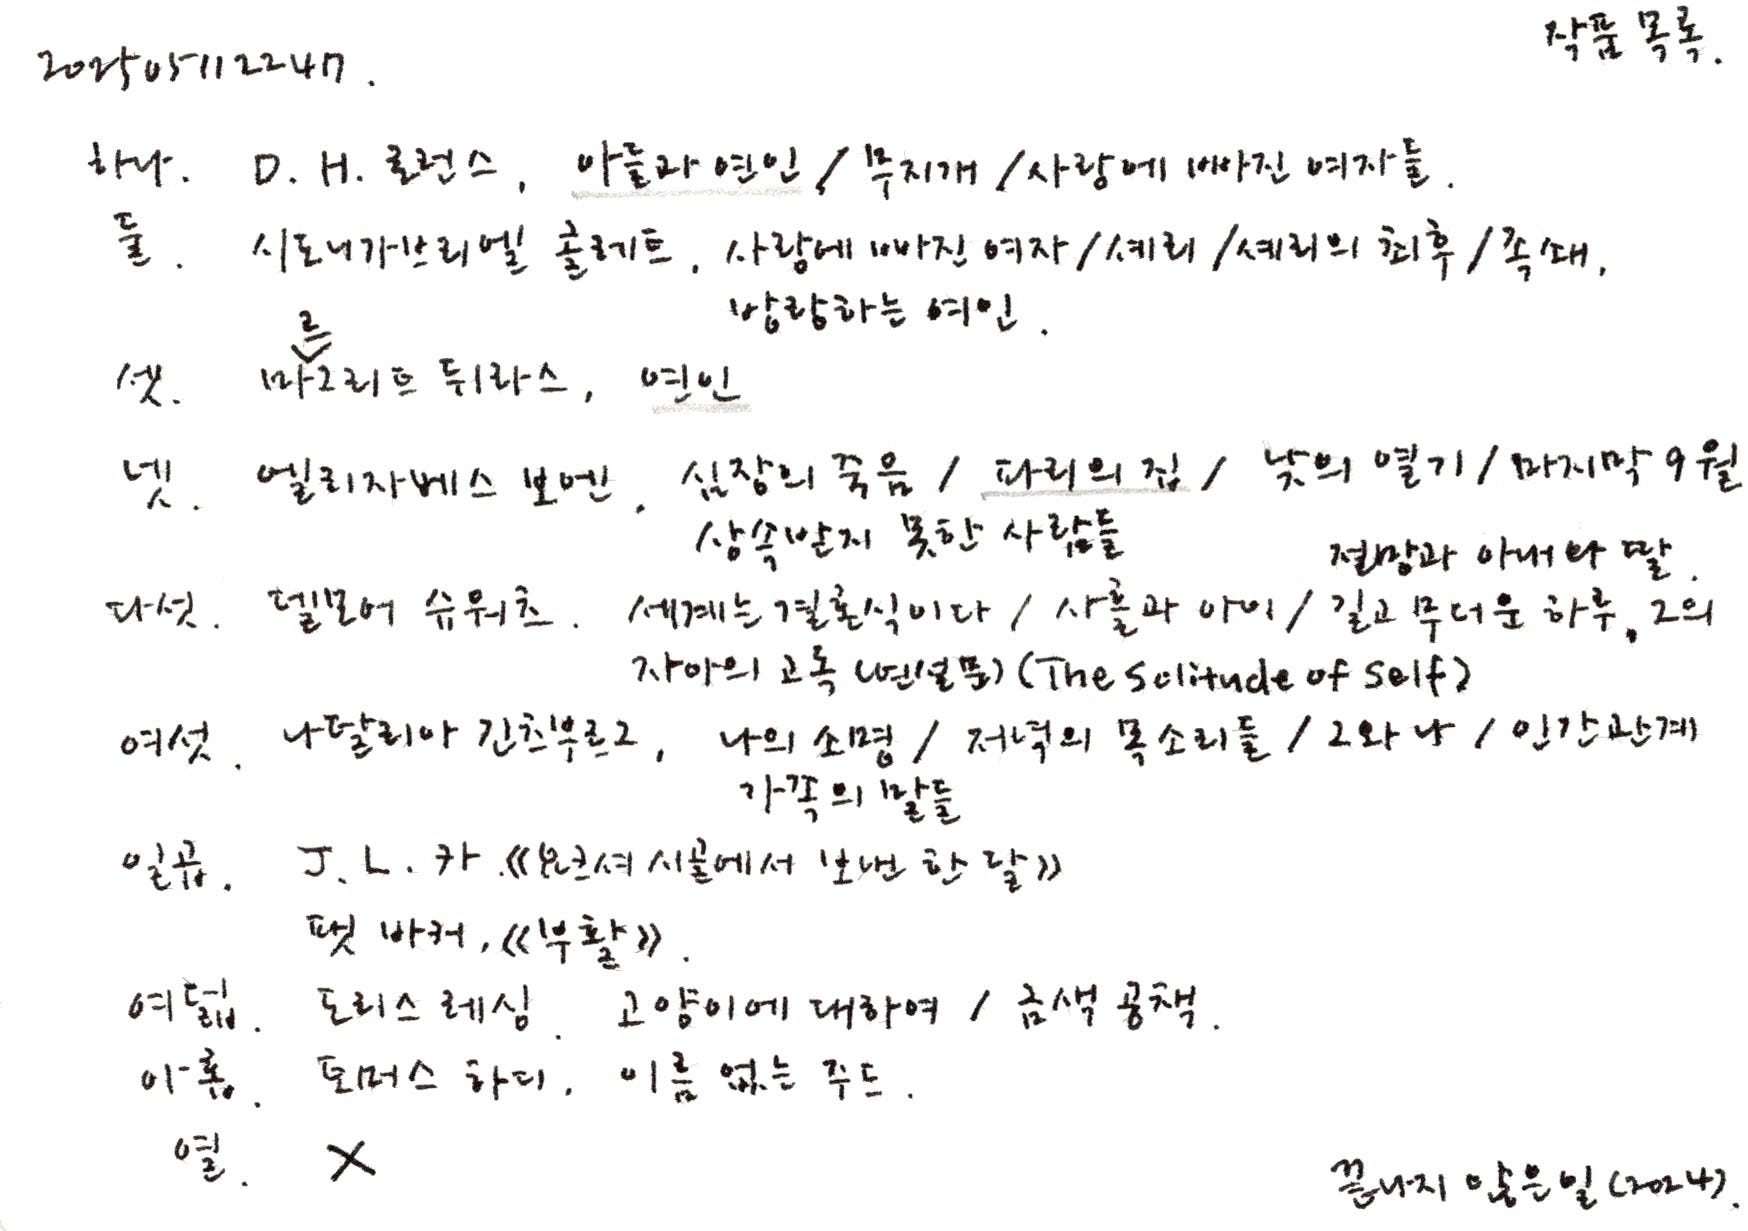 작품 목록.
202505112247.
하나. D. H. 로런스, 아들과 연인 / 무지개 / 사랑에 빠진 여자들.
둘. 시도니가브리엘 콜레트, 사랑에 빠진 여자 / 셰리 / 셰리의 최후 / 족쇄,
방랑하는 여인.
르
셋. 마그리트 뒤라스, 연인
넷. 엘리자베스 보엔, 심장의 죽음 / 파리의 집 / 낮의 열기 / 마지막 9월
상속받지 못한 사람들
절망과 아내와 딸.
다섯. 델모어 슈워츠. 세계는 결혼식이다 / 사흘과 아이 / 길고 무더운 하루, 그의
자아의 고독 (연설문) (The Solitude of Self)
여섯. 나탈리아 긴츠부르그, 나의 소명 / 저녁의 목소리들 / 그와 나 / 인간관계
가족의 말들
일곱. J. L. 카. 《요크셔 시골에서 보낸 한 달》
팻 바커, 《부활》.
여덟. 도리스 레싱. 고양이에 대하여 / 금색 공책.
아홉. 토머스 하디. 이름 없는 주드.
열. X
끝나지 않은 일 (2024).